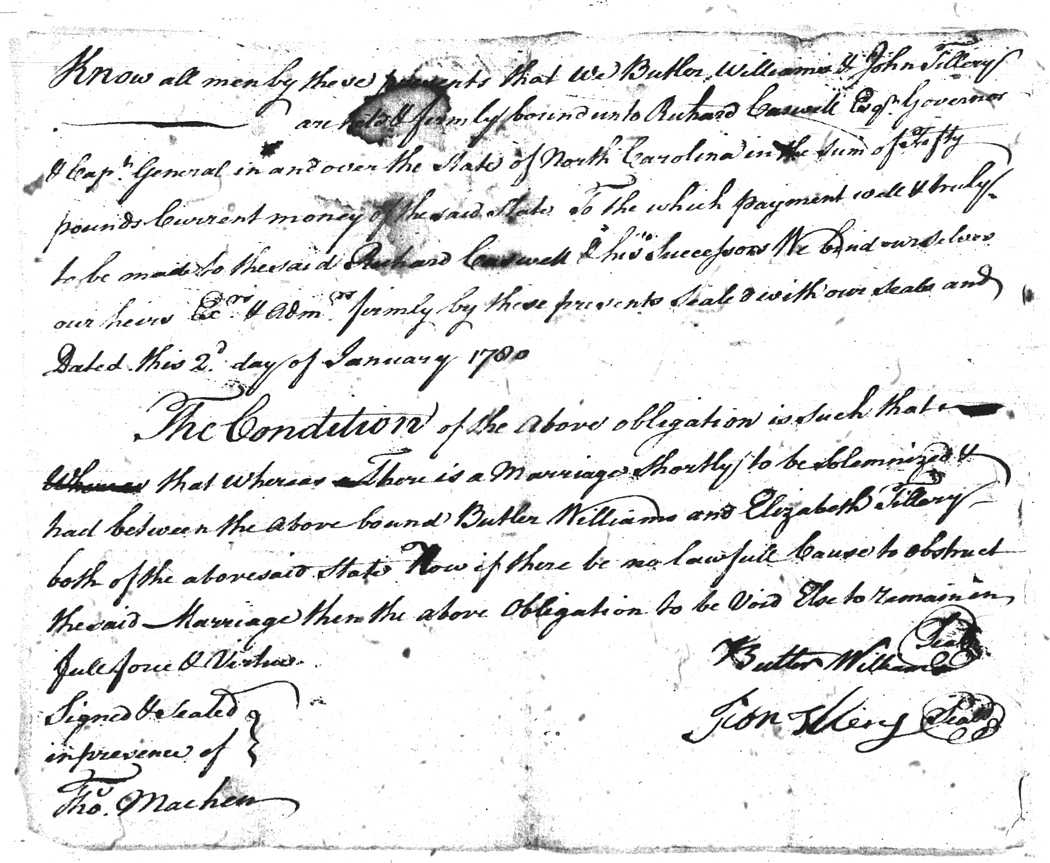 Know all men by these presents that We Butler Williams & John Tillery
are held & firmly bound unto Richard Caswell Esqr. Governor
& Capn. General in and over the State of North Carolina in the sum of Fifty
pounds Current money of the said State To the which payment well & truly
to be made to the said Richard Caswell & his Successors We bind ourselves
our heirs Exrs. & Admrs. firmly by these presents Sealed with our seals and
Dated this 2d. day of January 1780
The Condition of the above obligation is such that
Whereas that whereas There is a Marriage shortly to be Solemnized &
had between the above bound Butler Williams and Elizabeth Tillery
both of the abovesaid State Now if there be no lawfull Cause to obstruct
the said Marriage then the above Obligation to be Void Else to remain in
full force & Virtue.
Butler Williams Seal
Signed & Sealed
John Tillery Seal
in presence of
Thos. Machen